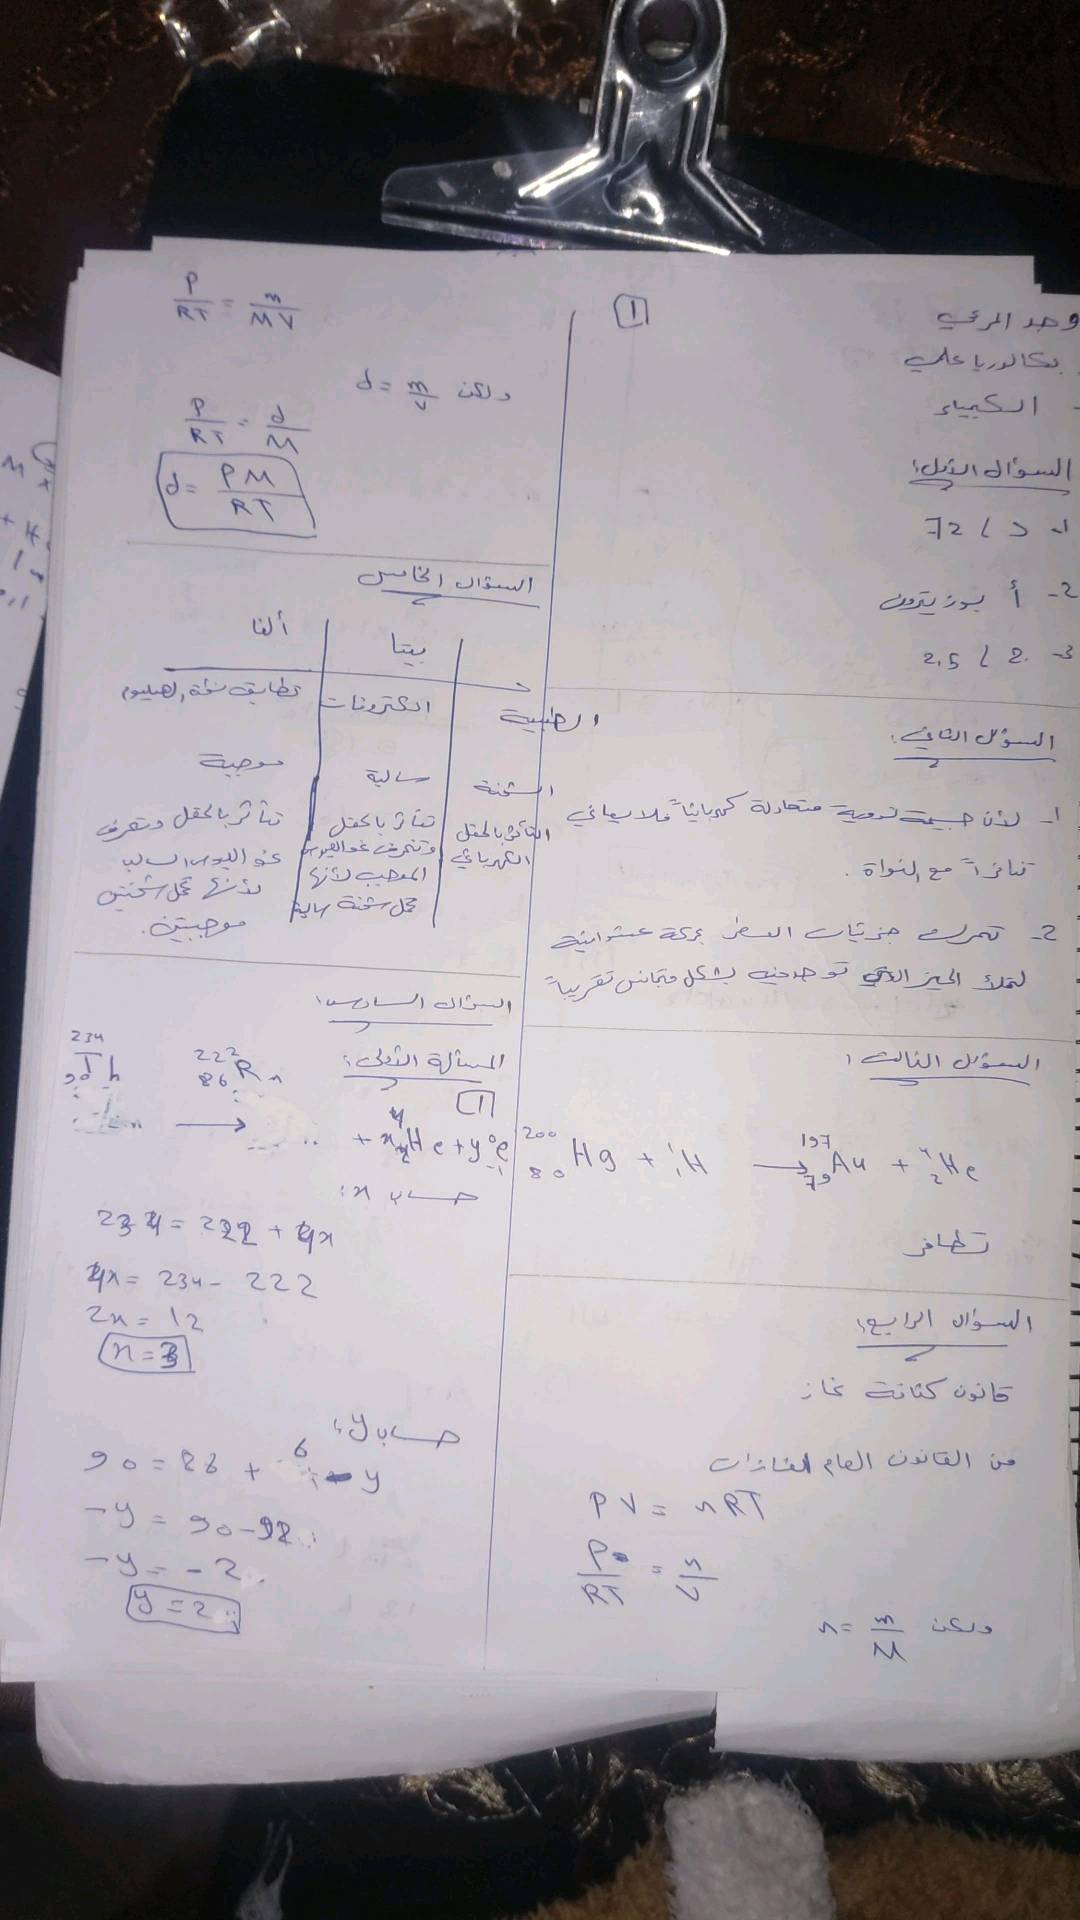 1
وجد المرعي
بكالوريا علمي
الكيمياء
السؤال الأول:
1- د / 72
2- أ بوزيترون
3- 2 / 2,5
السؤال الثاني:
1- لأن جسيمة نووية متعادلة كهربائياً فلا يعاني
تنافراً مع النواة.
2- تتحرك جزيئات العطر بحركة عشوائية
لتملأ الحيز الذي توجد فيه بشكل متجانس تقريباً
السؤال الثالث:
²⁰⁰₈₀Hg + ¹₁H → ¹⁹⁷₇₉Au + ⁴₂He
تطافر
السؤال الرابع:
قانون كثافة غاز
من القانون العام للغازات
PV = nRT
P/RT = n/V
ولكن n = m/M
P/RT = m/MV
ولكن d = m/V
P/RT = d/M
d = PM/RT
السؤال الخامس
بيتا ألفا
الطبيعة الكترونات تطابق نواة الهيليوم
الشحنة سالبة موجبة
التأثر بالحقل تتأثر بالحقل تتأثر بالحقل وتنحرف
الكهربائي وتنحرف نحو اللبوس نحو اللبوس السالب
الموجب لأنها لأنها تحمل شحنتين
تحمل شحنة سالبة موجبتين.
السؤال السادس:
المسألة الأولى:
1
²³⁴₉₀Th → ²²²₈₆Rn + x⁴₂He + y⁰₋₁e
حساب x:
234 = 222 + 4x
4x = 234 - 222
2x = 12
x = 3
حساب y:
90 = 86 + 6 - y
-y = 90 - 92
-y = -2
y = 2